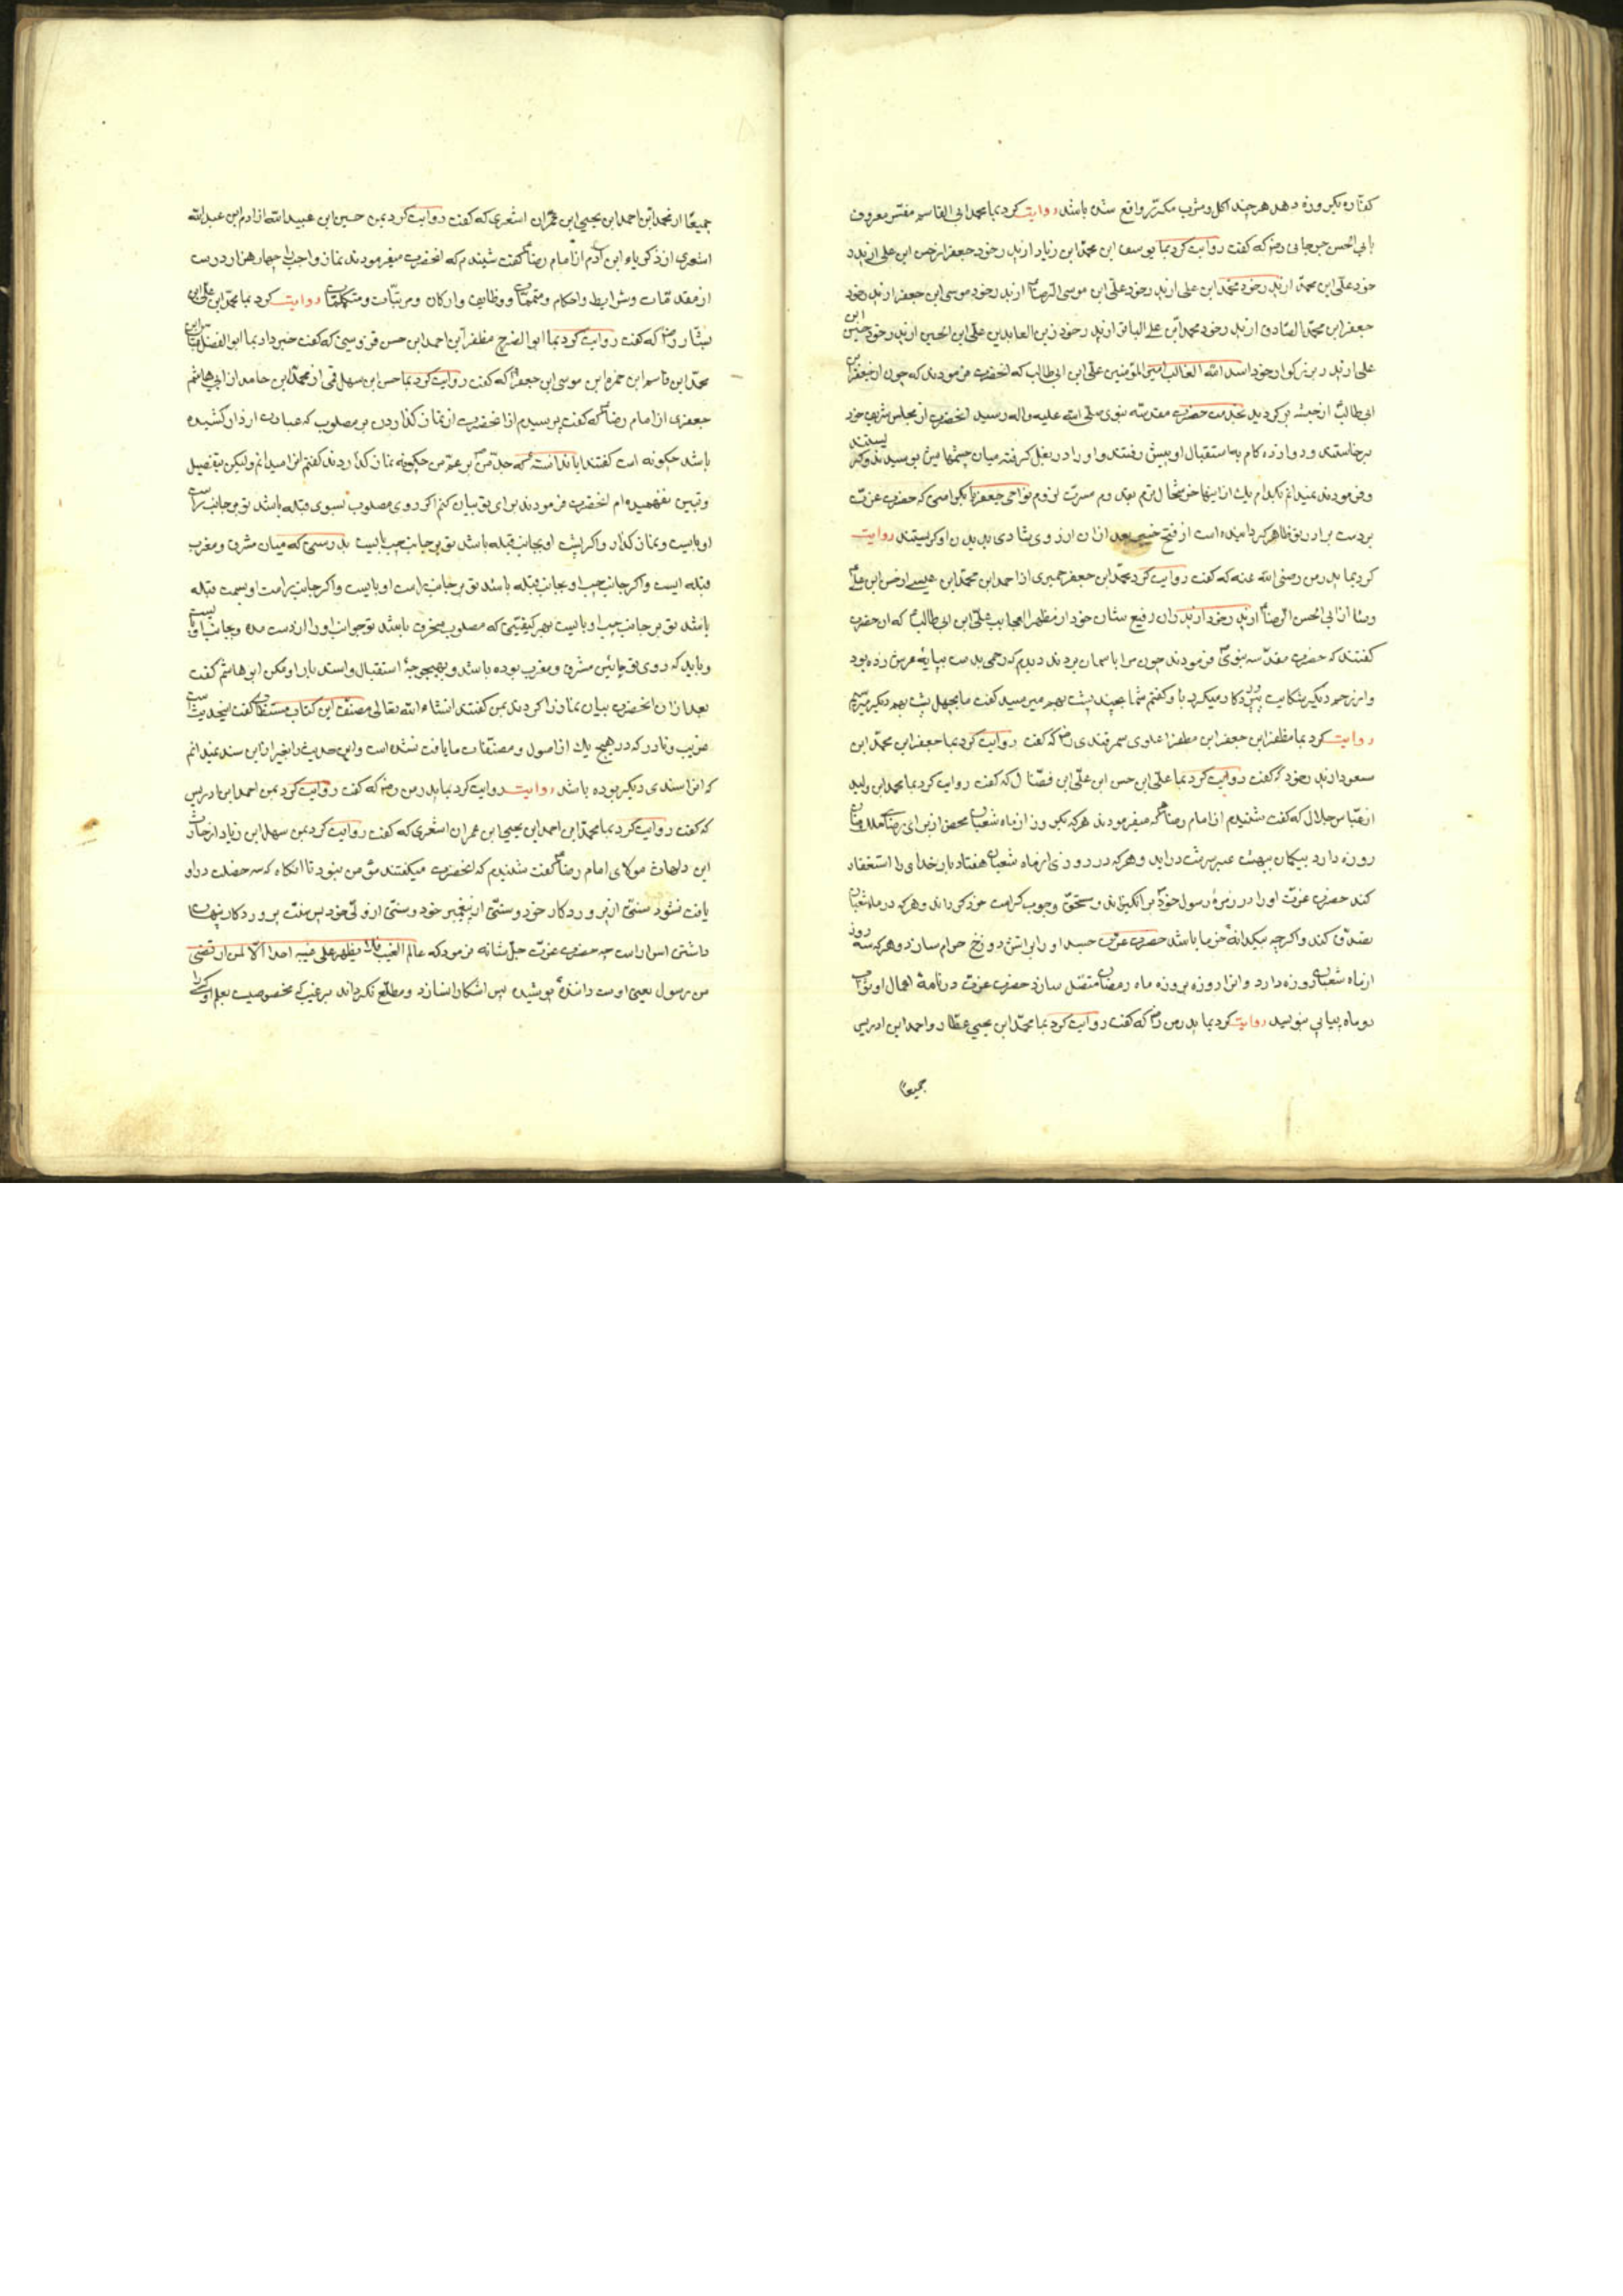 کفاره یکروزه دهد هر چند اکل و شرب مکرّر واقع شده باشد روایت کرد بما محمد ابی القاسم مفسّر معروف
بابی الحسن جرجانی رضه که گفت روایت کرد بما یوسف ابن محمد ابن زیاد از پدر خود جعفر از حسن ابن علی از پدر
خود علی ابن محمد از پدر خود محمد ابن علی از پدر خود علی ابن موسی الرضا از پدر خود موسی ابن جعفر از پدر خود
جعفر ابن محمد الصادق از پدر خود محمد ابن علی الباقر از پدر خود زین العابدین علی ابن الحسین از پدر خود حسین ابن
علی از پدر بزرکوار خود اسد الله الغالب امیر المؤمنین علی ابن ابی طالب که انحضرت فرمودند که چون جعفر ابن
ابی طالب از حبشه برکردید بخدمت حضرت مقدسه نبوی صلی الله علیه واله رسید انحضرت از مجلس شریف خود
برخاستند و دوازده کام باستقبال او پیش رفتند و او را در بغل کرفته میان چشمهایش بوسیدند و کریستند
و فرمودند نمیدانم بکدام یک از اینها خوشحال ترم بقدوم مسرت لزوم تو اخی جعفر یا بکرامتی که حضرت عزت
بر دست برادر تو ظاهر کردانیده است از فتح خیبر بعد ازان از روی شادی بدیدن او کریستند روایت
کرد بما پدر من رضی الله عنه که گفت روایت کرد محمد ابن جعفر حمیری از احمد ابن محمد ابن عیسی از حسن ابن علی
وشا از ابی الحسن الرضا از پدر خود از پدران رفیع شان خود از مظهر العجایب علی ابن ابی طالب که از حضرت
گفتند که حضرت مقدسه نبوی فرمودند چون مرا باسمان بردند دیدم که رحمی بدست بپایه عرش زده بود
و از رحم دیکر شکایت پیش پروردکار میکرد باو گفتم شما بچند پشت بهم میرسید گفت ما بچهل پشت بهم دیکر میرسیم
روایت کرد بما مظفر ابن جعفر ابن مظفر علوی سمرقندی رضه که گفت روایت کرد بما جعفر ابن محمد ابن
مسعود از پدر خود که گفت روایت کرد بما علی ابن حسن ابن علی ابن فضال که گفت روایت کرد بما محمد ابن ولید
از عباس هلال که گفت شنیدم از امام رضا که میفرمودند هر که یکروز از ماه شعبان محض از برای رضای ملک منان
روزه دارد بیکمان ببهشت عنبر سرشت دراید و هر که در روزی از ماه شعبان هفتاد بار خدای را استغفار
کند حضرت عزت او را در زمره رسول خود بر انکیزاند و مستحق و وجوب کرامت خود کرداند و هر که در ماه شعبان
تصدق کند و اکرچه بیکدانه خرما باشد حضرت عزت جسد او را بر اتش دوزخ حرام سازد و هر که سه روز
از ماه شعبان روزه دارد و انرا روزه بروزه ماه رمضان متصل سازد حضرت عزت در نامه اعمال او ثواب
دو ماه پیاپی بنویسد روایت کرد بما پدر من رضه که گفت روایت کرد بما محمد ابن یحیی عطار و احمد ابن ادریس
جمیعا
جمیعا از محمد ابن احمد ابن یحیی ابن عمران اشعری که گفت روایت کرد بمن حسین ابن عبید الله از ادم ابن عبدالله
اشعری از ذکریاء ابن آدم از امام رضا گفت شنیدم که انحضرت میفرمودند نماز واجب را چهار هزار درست
از مقدمات و شرایط و احکام و متممات و وظایف و ارکان و مرتبات و متکملات روایت کرد بما محمد ابن علی ابن
بشار رضه که گفت روایت کرد بما ابو الفرج مظفر ابن احمد ابن حسن قزوینی که گفت خبر داد بما ابو الفضل عباس ابن
محمد ابن قاسم ابن حمزه ابن موسی ابن جعفر که گفت روایت کرد بما حسن ابن سهل قمی از محمد ابن حامد از ابی هاشم
جعفری از امام رضا که گفت پرسیدم از انحضرت از نماز کذاردن بر مصلوب که عبارت از دار کشیده
باشد چکونه است گفتند ایا ندانسته که جدّ من بر عم من چکونه نماز کذاردند گفتم انرا میدانم ولیکن بتفصیل
و تبیین نفهمیده‌ام انحضرت فرمودند برای تو بیان کنم اکر روی مصلوب بسوی قبله باشد تو بر جانب راست
او بایست و نماز کذار و اکر پشت او بجانب قبله باشد تو بر جانب چپ بایست بدرستی که میان مشرق و مغرب
قبله ایست و اکر جانب چپ او بجانب قبله باشد تو بر جانب راست او بایست و اکر جانب راست او بسمت قبله
باشد تو بر جانب چپ او بایست بهر کیفیتی که مصلوب منحرف باشد تو جوانب او را از دست مده و بجانب او بایست
و باید که روی تو مابین مشرق و مغرب بوده باشد و بهیچوجه استقبال و استدبار او مکن ابو هاشم گفت
بعد ازان انحضرت بیان نماز را کردند بمن گفتند انشاء الله تعالی مصنف این کتاب مستطاب گفت اینحدیث
غریب و نادر که در هیچ یک از اصول و مصنفات ما یافت نشده است و این حدیث را بغیر از این سند نمیدانم
که انرا سندی دیکر بوده باشد روایت روایت کرد بما پدر من رضه که گفت روایت کرد بمن احمد ابن ادریس
که گفت روایت کرد بما محمد ابن احمد ابن یحیی ابن عمران اشعری که گفت روایت کرد بمن سهل ابن زیاد از حارث
ابن دلهاث مولای امام رضا گفت شنیدم که انحضرت میکفتند مؤمن نبود تا انکاه که سه خصلت در او
یافت نشود سنتی از پروردکار خود و سنتی از پیغمبر خود و سنتی از ولی خود پس سنت پروردکار پنهان
داشتن اسرار است چه حضرت عزت جل شانه فرمود که عالم الغیب فلا یظهر علی غیبه احدا الا لمن ارتضی
من رسول یعنی اوست داننده پوشیده پس اشکارا نسازد و مطلع نکرداند بر غیب که مخصوصیت بعلم او کسی را